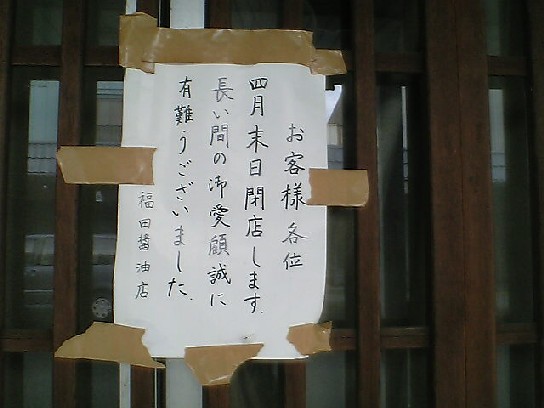 お客様各位
四月末日閉店します.
長い間の御愛顧誠に
有難うございました.
福田醤油店